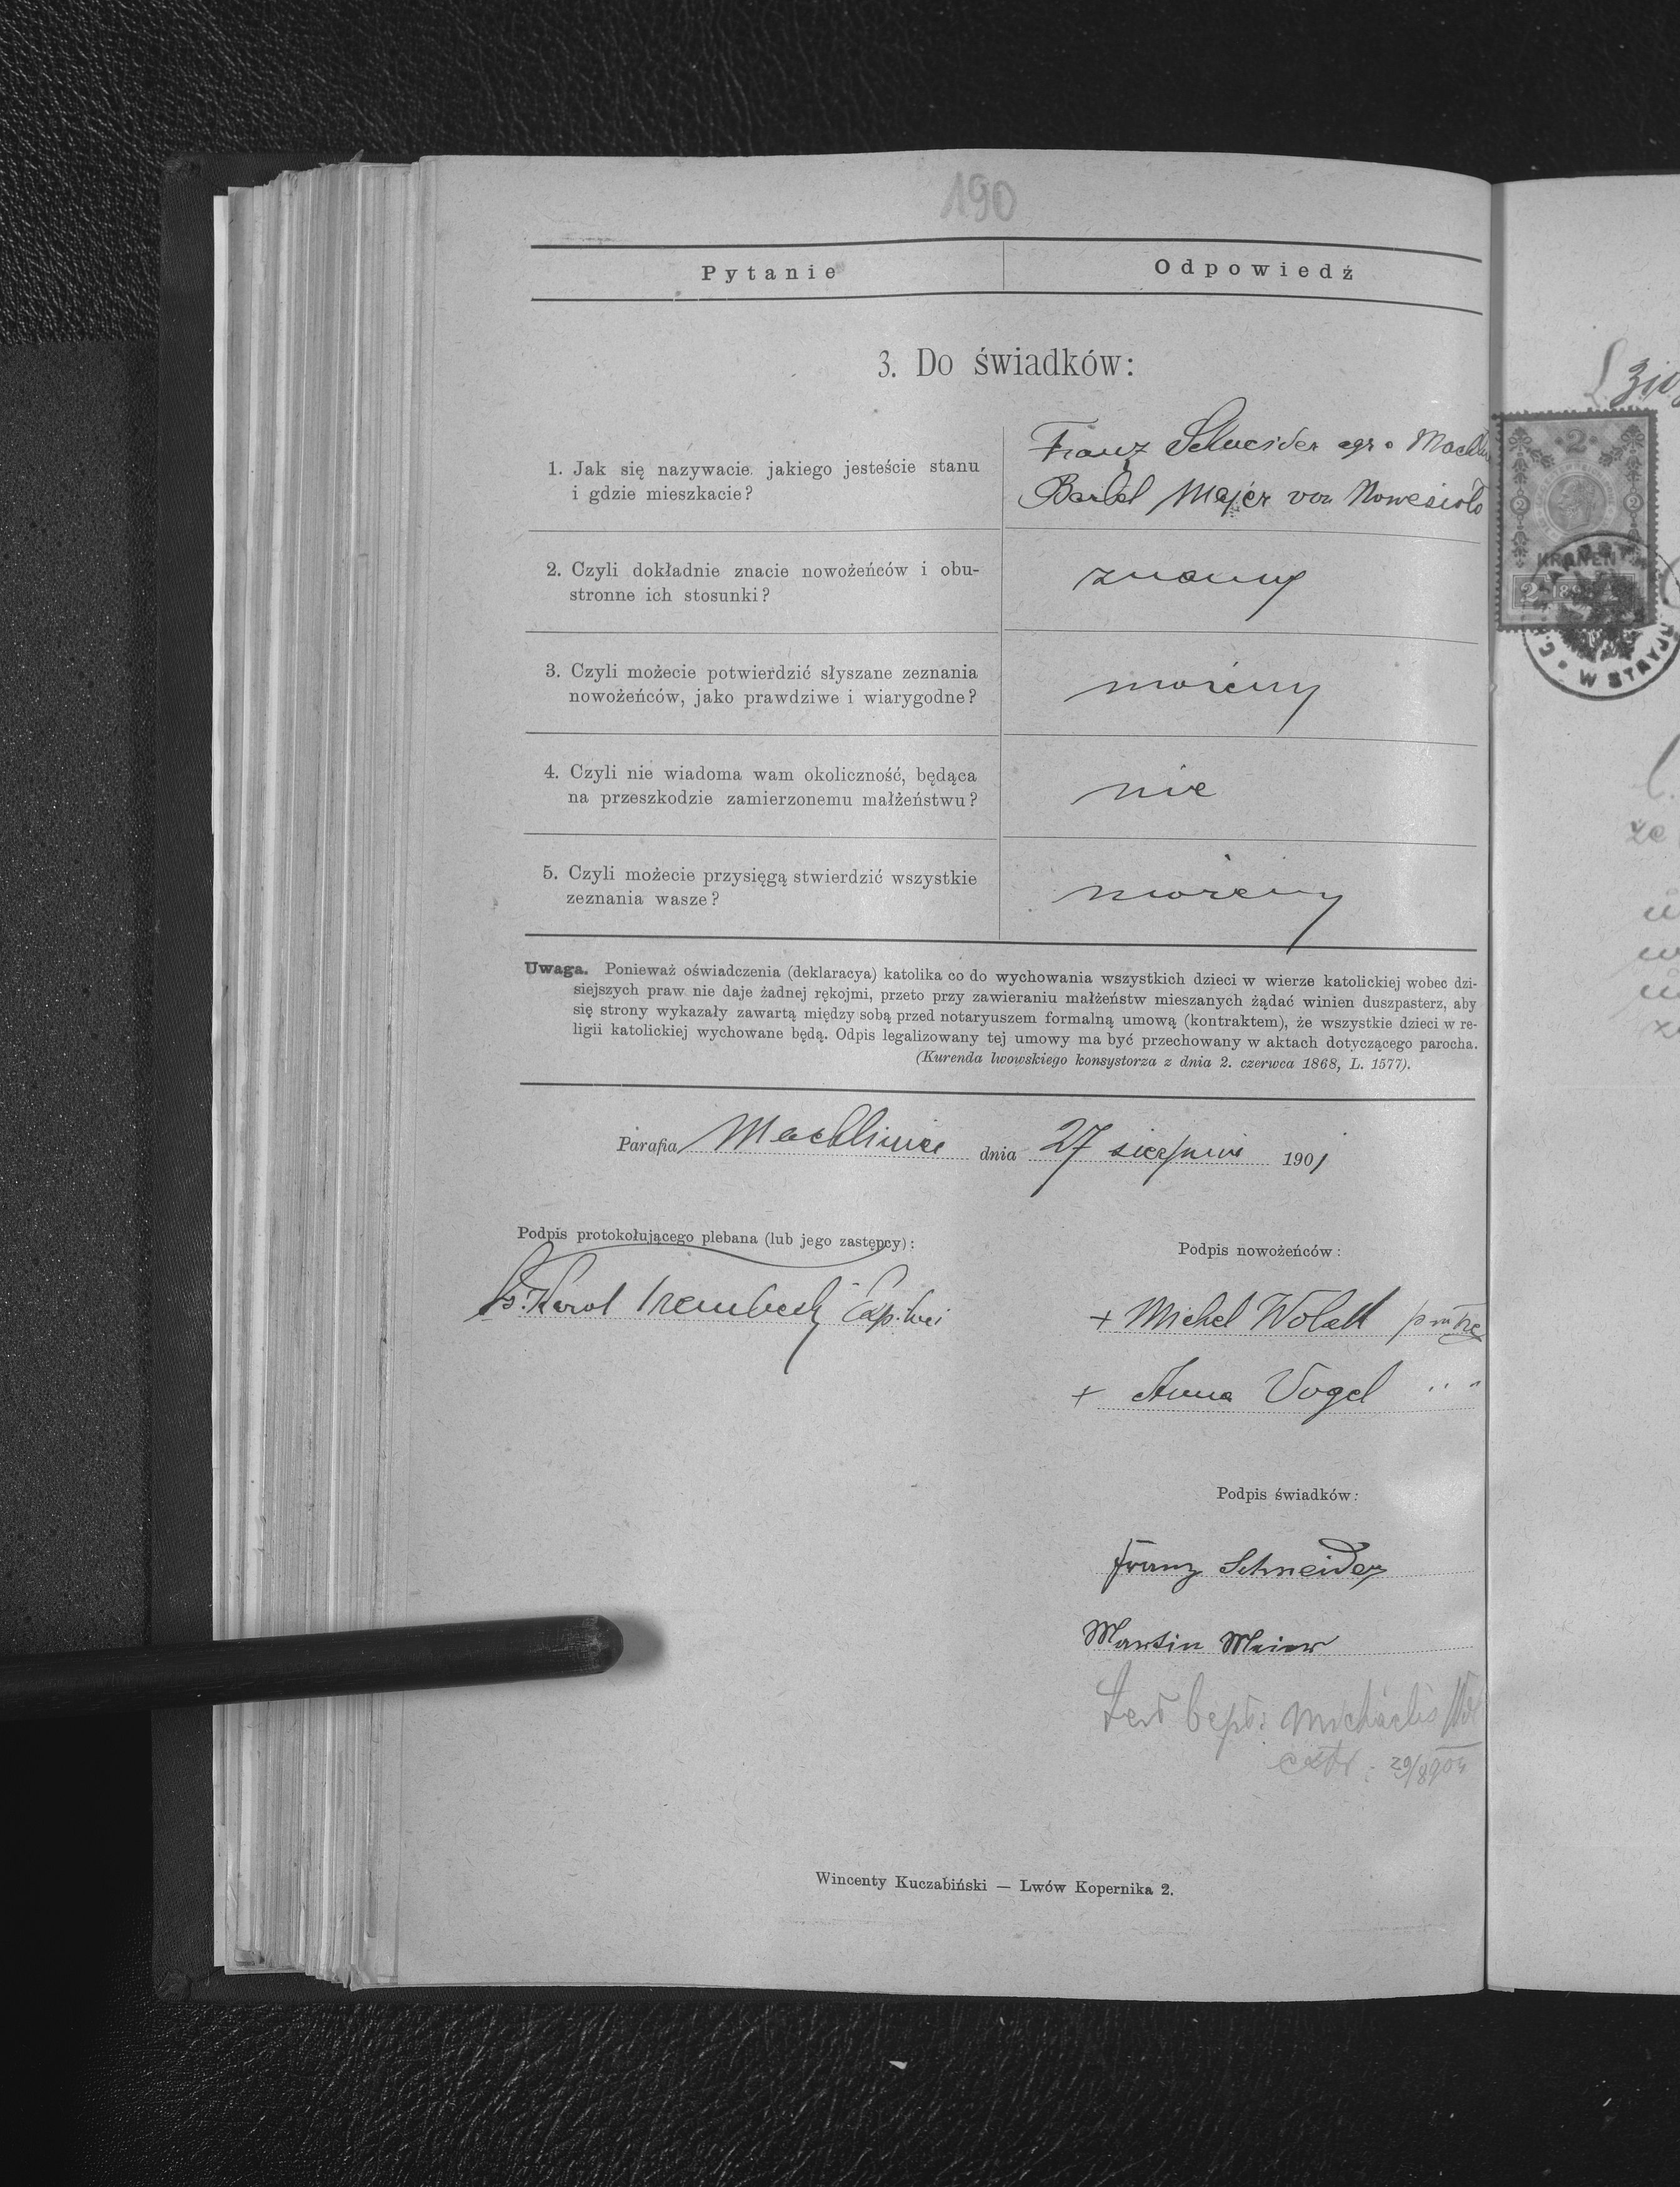 190
Pytanie Odpowiedź
3. Do świadków:
1. Jak się nazywacie, jakiego jesteście stanu
i gdzie mieszkacie?
Franz Schneider agr
Bartel Majer von Nowesioło
2. Czyli dokładnie znacie nowożeńców i obu-
stronne ich stosunki?
znamy
3. Czyli możecie potwierdzić słyszane zeznania
nowożeńców, jako prawdziwe i wiarygodne?
możemy
4. Czyli nie wiadoma wam okoliczność, będąca
na przeszkodzie zamierzonemu małżeństwu?
nie
5. Czyli możecie przysięgą stwierdzić wszystkie
zeznania wasze?
możemy
Uwaga. Ponieważ oświadczenia (deklaracya) katolika co do wychowania wszystkich dzieci w wierze katolickiej wobec dzi-
siejszych praw nie daje żadnej rękojmi, przeto przy zawieraniu małżeństw mieszanych żądać winien duszpasterz, aby
się strony wykazały zawartą między sobą przed notaryuszem formalną umową (kontraktem), że wszystkie dzieci w re-
ligii katolickiej wychowane będą. Odpis legalizowany tej umowy ma być przechowany w aktach dotyczącego parocha.
(Kurenda lwowskiego konsystorza z dnia 2. czerwca 1868, L. 1577).
Parafia Machlinice dnia 27 sierpnia 1901
Podpis protokołującego plebana (lub jego zastępcy):
X. Karol
Podpis nowożeńców:
+ Michel Wolall
+ Anna Vogel " "
Podpis świadków:
Franz Schneider
Martin Meier
bapt: Michaelis
extr: 29/8 90
Wincenty Kuczabiński — Lwów Kopernika 2.
2
2 2
KRONEN
2 189
W STRYJU